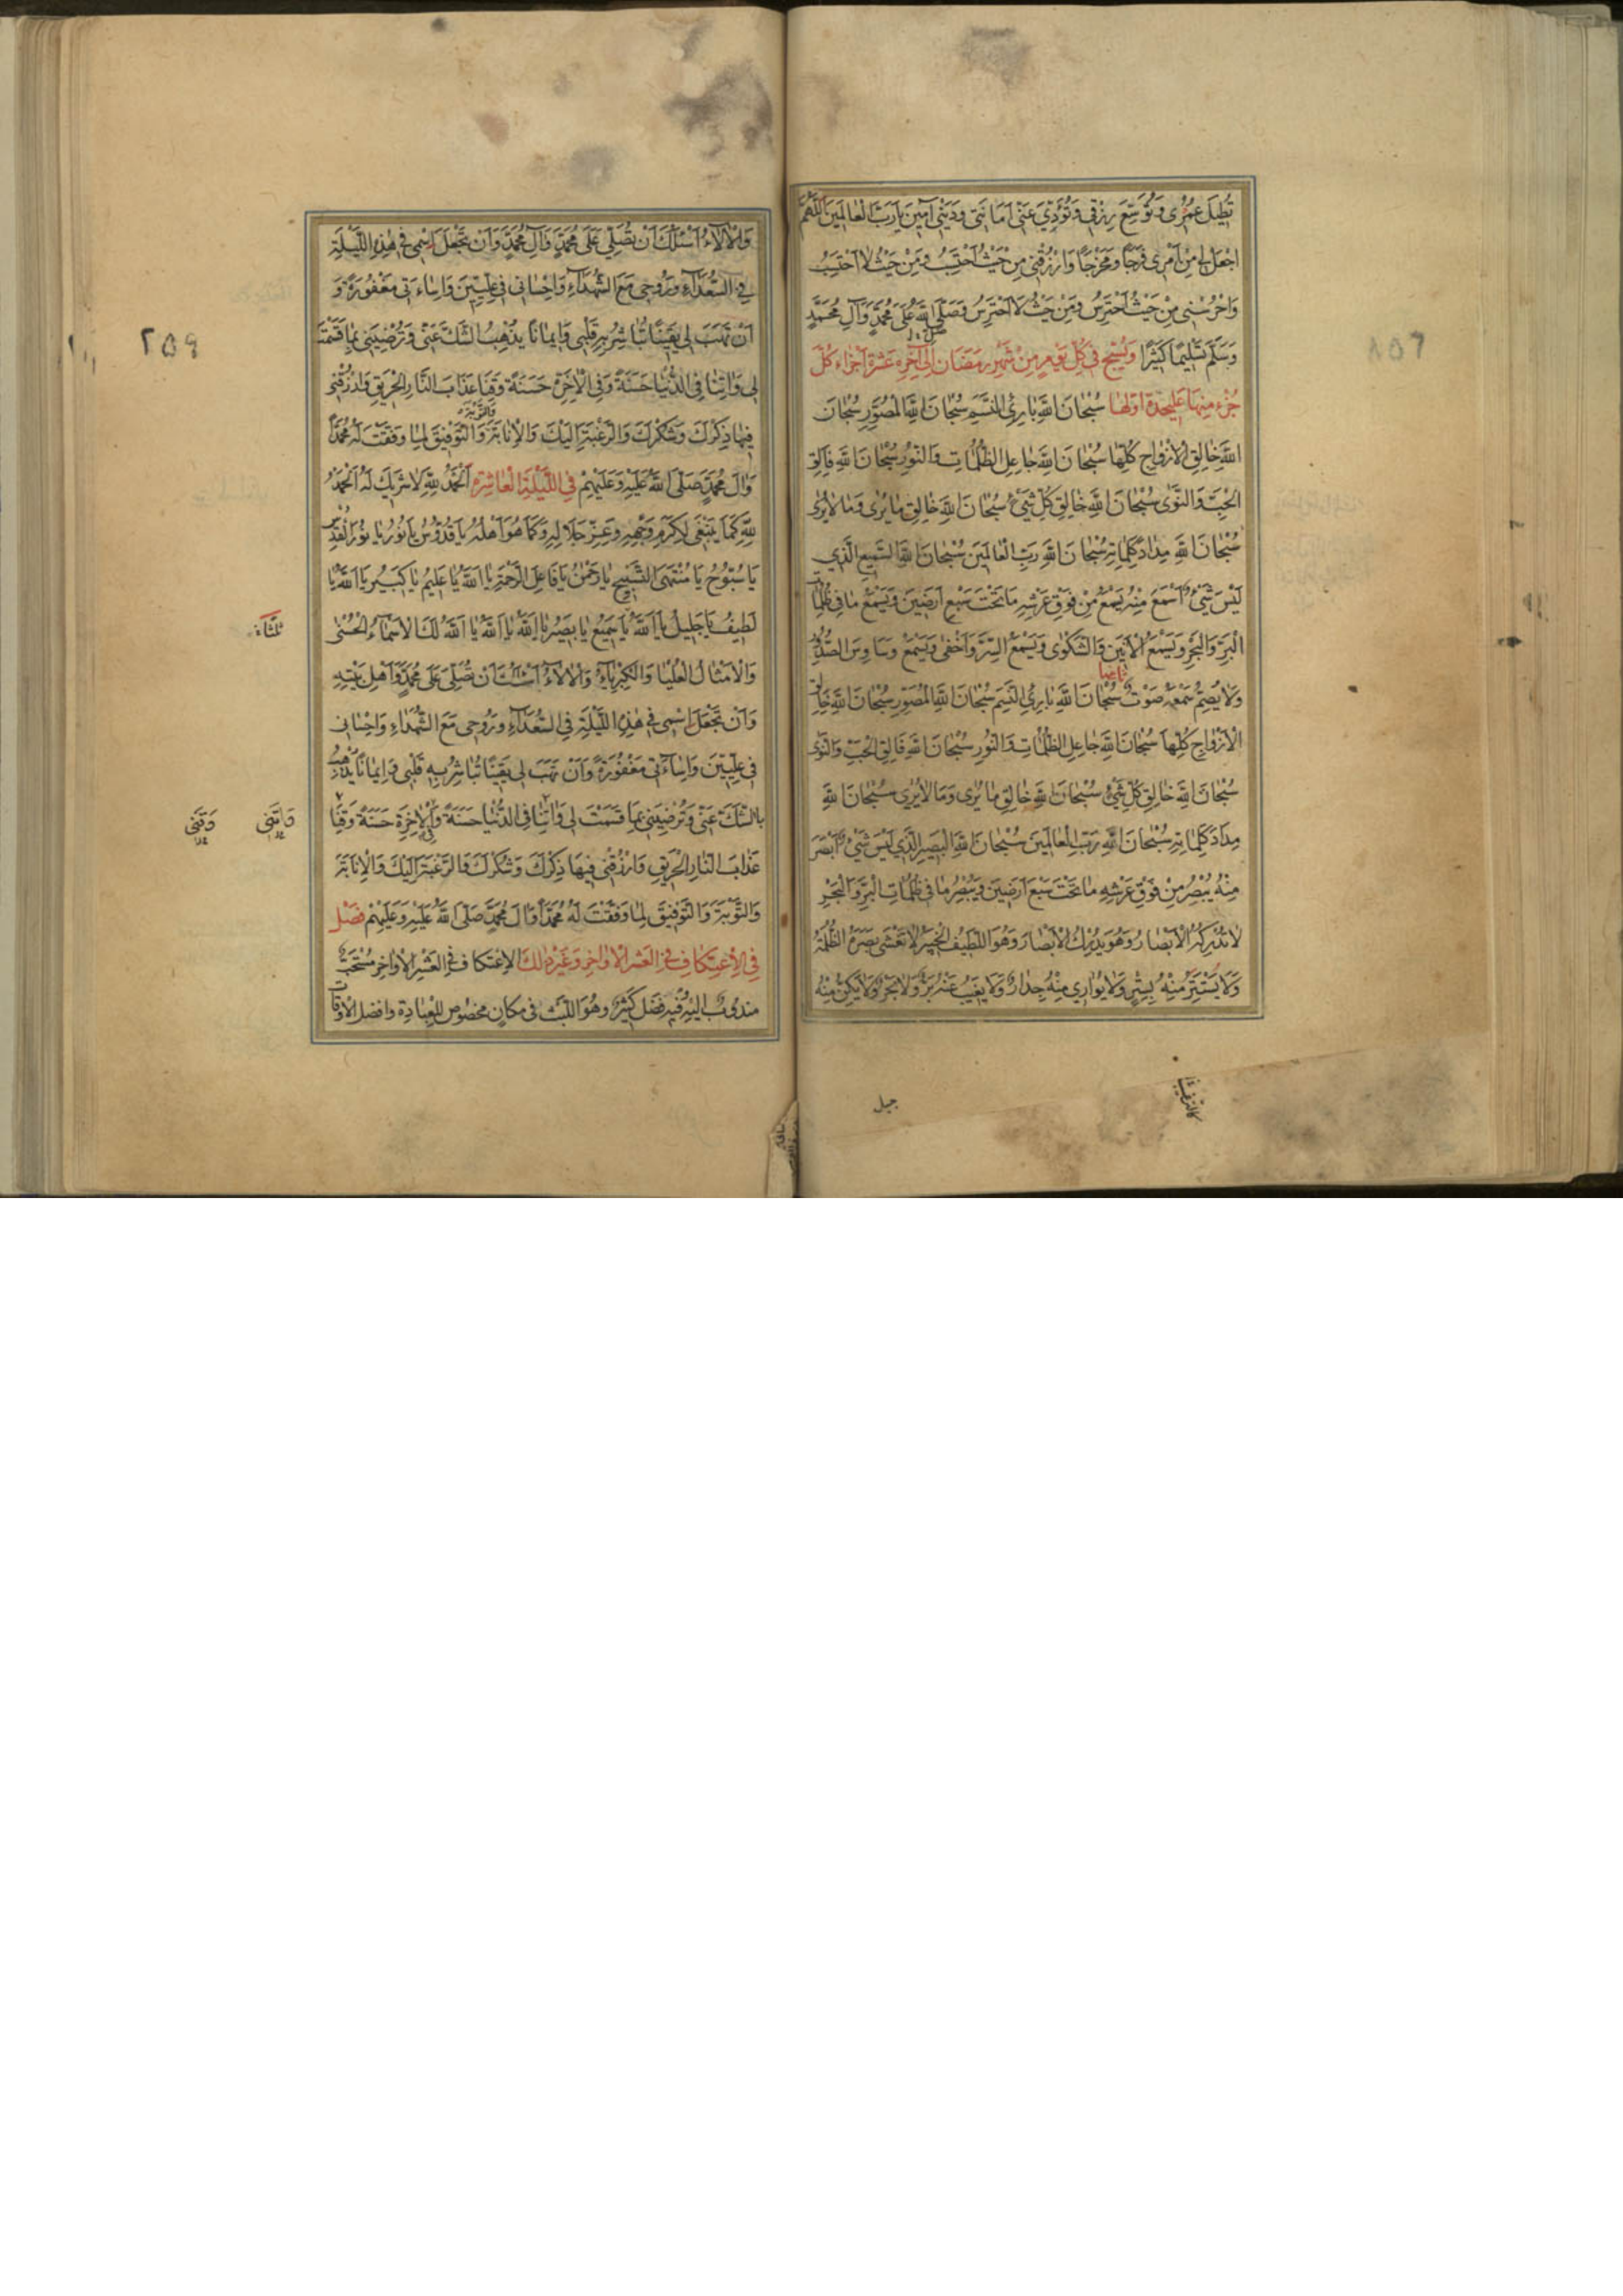 تُطِيلَ عُمْرِى وَتُوَسِّعَ رِزْقِي وَتُؤَدِّيَ عَنِّى اَمَانَتِى وَدَيْنِى آمِينَ يَا رَبَّ الْعَالَمِينَ اَللّٰهُمَّ
اجْعَلْ لِي مِنْ اَمْرِى فَرَجًا وَمَخْرَجًا وَارْزُقْنِى مِنْ حَيْثُ اَحْتَسِبُ وَمِنْ حَيْثُ لَا اَحْتَسِبُ
وَاحْرُسْنِى مِنْ حَيْثُ اَحْتَرِسُ وَمِنْ حَيْثُ لَا اَحْتَرِسُ وَصَلَّى اللّٰهُ عَلَى مُحَمَّدٍ وَآلِ مُحَمَّدٍ
وَسَلَّمَ تَسْلِيمًا كَثِيرًا وَتُسَبِّحُ فِي كُلِّ يَوْمٍ مِنْ شَهْرِ رَمَضَانَ اِلَى آخِرِهِ عَشَرَةَ اَجْزَاءٍ كُلُّ
جُزْءٍ مِنْهَا عَلَيحِدَةٍ اَوَّلُهَا سُبْحَانَ اللّٰهِ بَارِئِ النَّسَمِ سُبْحَانَ اللّٰهِ الْمُصَوِّرِ سُبْحَانَ
اللّٰهِ خَالِقِ الْاَزْوَاجِ كُلِّهَا سُبْحَانَ اللّٰهِ جَاعِلِ الظُّلُمَاتِ وَالنُّورِ سُبْحَانَ اللّٰهِ فَالِقِ
الْحَبِّ وَالنَّوَى سُبْحَانَ اللّٰهِ خَالِقِ كُلِّ شَيْءٍ سُبْحَانَ اللّٰهِ خَالِقِ مَا يُرَى وَمَا لَا يُرَى
سُبْحَانَ اللّٰهِ مِدَادَ كَلِمَاتِهِ سُبْحَانَ اللّٰهِ رَبِّ الْعَالَمِينَ سُبْحَانَ اللّٰهِ السَّمِيعِ الَّذِي
لَيْسَ شَيْءٌ اَسْمَعَ مِنْهُ يَسْمَعُ مِنْ فَوْقِ عَرْشِهِ مَا تَحْتَ سَبْعِ اَرَضِينَ وَيَسْمَعُ مَا فِي ظُلُمَاتِ
الْبَرِّ وَالْبَحْرِ وَيَسْمَعُ الْاَنِينَ وَالشَّكْوَى وَيَسْمَعُ السِّرَّ وَاَخْفَى وَيَسْمَعُ وَسَاوِسَ الصُّدُورِ
ثانيها
وَلَا يُصِمُّ سَمْعَهُ صَوْتٌ سُبْحَانَ اللّٰهِ بَارِئِ النَّسَمِ سُبْحَانَ اللّٰهِ الْمُصَوِّرِ سُبْحَانَ اللّٰهِ خَالِقِ
الْاَزْوَاجِ كُلِّهَا سُبْحَانَ اللّٰهِ جَاعِلِ الظُّلُمَاتِ وَالنُّورِ سُبْحَانَ اللّٰهِ فَالِقِ الْحَبِّ وَالنَّوَى
سُبْحَانَ اللّٰهِ خَالِقِ كُلِّ شَيْءٍ سُبْحَانَ اللّٰهِ خَالِقِ مَا يُرَى وَمَا لَا يُرَى سُبْحَانَ اللّٰهِ
مِدَادَ كَلِمَاتِهِ سُبْحَانَ اللّٰهِ رَبِّ الْعَالَمِينَ سُبْحَانَ اللّٰهِ الْبَصِيرِ الَّذِي لَيْسَ شَيْءٌ اَبْصَرَ
مِنْهُ يُبْصِرُ مِنْ فَوْقِ عَرْشِهِ مَا تَحْتَ سَبْعِ اَرَضِينَ وَيُبْصِرُ مَا فِي ظُلُمَاتِ الْبَرِّ وَالْبَحْرِ
لَا تُدْرِكُهُ الْاَبْصَارُ وَهُوَ يُدْرِكُ الْاَبْصَارَ وَهُوَ اللَّطِيفُ الْخَبِيرُ لَا تَغْشَى بَصَرَهُ الظُّلْمَةُ
وَلَا يَسْتَتِرُ مِنْهُ بِسِتْرٍ وَلَا يُوَارِي مِنْهُ جِدَارٌ وَلَا يَغِيبُ عَنْهُ بَرٌّ وَلَا بَحْرٌ وَلَا يَكِنُّ مِنْهُ
جبل
وَالْاٰلَاءُ اَسْئَلُكَ اَنْ تُصَلِّيَ عَلَى مُحَمَّدٍ وَآلِ مُحَمَّدٍ وَاَنْ تَجْعَلَ اسْمِى فِي هٰذِهِ اللَّيْلَةِ
فِي السُّعَدَاءِ وَرُوحِى مَعَ الشُّهَدَاءِ وَاِحْسَانِى فِي عِلِّيِّينَ وَاِسَاءَتِى مَغْفُورَةً وَ
اَنْ تَهَبَ لِى يَقِينًا تُبَاشِرُ بِهِ قَلْبِى وَاِيمَانًا يُذْهِبُ الشَّكَّ عَنِّى وَتُرْضِيَنِى بِمَا قَسَمْتَ
لِى وَاٰتِنَا فِى الدُّنْيَا حَسَنَةً وَفِى الْاٰخِرَةِ حَسَنَةً وَقِنَا عَذَابَ النَّارِ الْحَرِيقِ وَارْزُقْنِى
والتوبة
فِيهَا ذِكْرَكَ وَشُكْرَكَ وَالرَّغْبَةَ اِلَيْكَ وَالْاِنَابَةَ وَالتَّوْفِيقَ لِمَا وَفَّقْتَ لَهُ مُحَمَّدًا
وَاٰلَ مُحَمَّدٍ صَلَّى اللّٰهُ عَلَيْهِ وَعَلَيْهِمْ فِي اللَّيْلَةِ الْعَاشِرَةِ اَلْحَمْدُ لِلّٰهِ لَا شَرِيكَ لَهُ اَلْحَمْدُ
لِلّٰهِ كَمَا يَنْبَغِى لِكَرَمِ وَجْهِهِ وَعِزِّ جَلَالِهِ وَكَمَا هُوَ اَهْلُهُ يَا قُدُّوسُ يَا نُورُ يَا نُورَ الْقُدْسِ
يَا سُبُّوحُ يَا مُنْتَهَى التَّسْبِيحِ يَا رَحْمٰنُ يَا فَاعِلَ الرَّحْمَةِ يَا اَللّٰهُ يَا عَلِيمُ يَا كَبِيرُ يَا اَللّٰهُ يَا
لَطِيفُ يَا جَلِيلُ يَا اَللّٰهُ يَا سَمِيعُ يَا بَصِيرُ يَا اَللّٰهُ يَا اَللّٰهُ يَا اَللّٰهُ لَكَ الْاَسْمَاءُ الْحُسْنٰى
وَالْاَمْثَالُ الْعُلْيَا وَالْكِبْرِيَاءُ وَالْاٰلَاءُ اَسْئَلُكَ اَنْ تُصَلِّيَ عَلَى مُحَمَّدٍ وَاَهْلِ بَيْتِهِ
وَاَنْ تَجْعَلَ اسْمِى فِي هٰذِهِ اللَّيْلَةِ فِي السُّعَدَاءِ وَرُوحِى مَعَ الشُّهَدَاءِ وَاِحْسَانِى
فِى عِلِّيِّينَ وَاِسَاءَتِى مَغْفُورَةً وَاَنْ تَهَبَ لِى يَقِينًا تُبَاشِرُ بِهِ قَلْبِى وَاِيمَانًا يُذْهِبُ
بالشَّكَّ عَنِّى وَتُرْضِيَنِى بِمَا قَسَمْتَ لِى وَاٰتِنَا فِى الدُّنْيَا حَسَنَةً وَفِى الْاٰخِرَةِ حَسَنَةً وَقِنَا
عَذَابَ النَّارِ الْحَرِيقِ وَارْزُقْنِى فِيهَا ذِكْرَكَ وَشُكْرَكَ وَالرَّغْبَةَ اِلَيْكَ وَالْاِنَابَةَ
وَالتَّوْبَةَ وَالتَّوْفِيقَ لِمَا وَفَّقْتَ لَهُ مُحَمَّدًا وَاٰلَ مُحَمَّدٍ صَلَّى اللّٰهُ عَلَيْهِ وَعَلَيْهِمْ فَصْل
فِي الْاِعْتِكَافِ فِي الْعَشْرِ الْاَوَاخِرِ وَغَيْرِ ذٰلِكَ الْاِعْتِكَافُ فِي الْعَشْرِ الْاَوَاخِرِ مُسْتَحَبٌّ
مندوبٌ اليه فيه فضل كثير وهو اللبث فى مكان مخصوص للعبادة وافضل الاوقات
٢٥٩
ثلثاً
وَاٰتِنِى
وَقِنِى